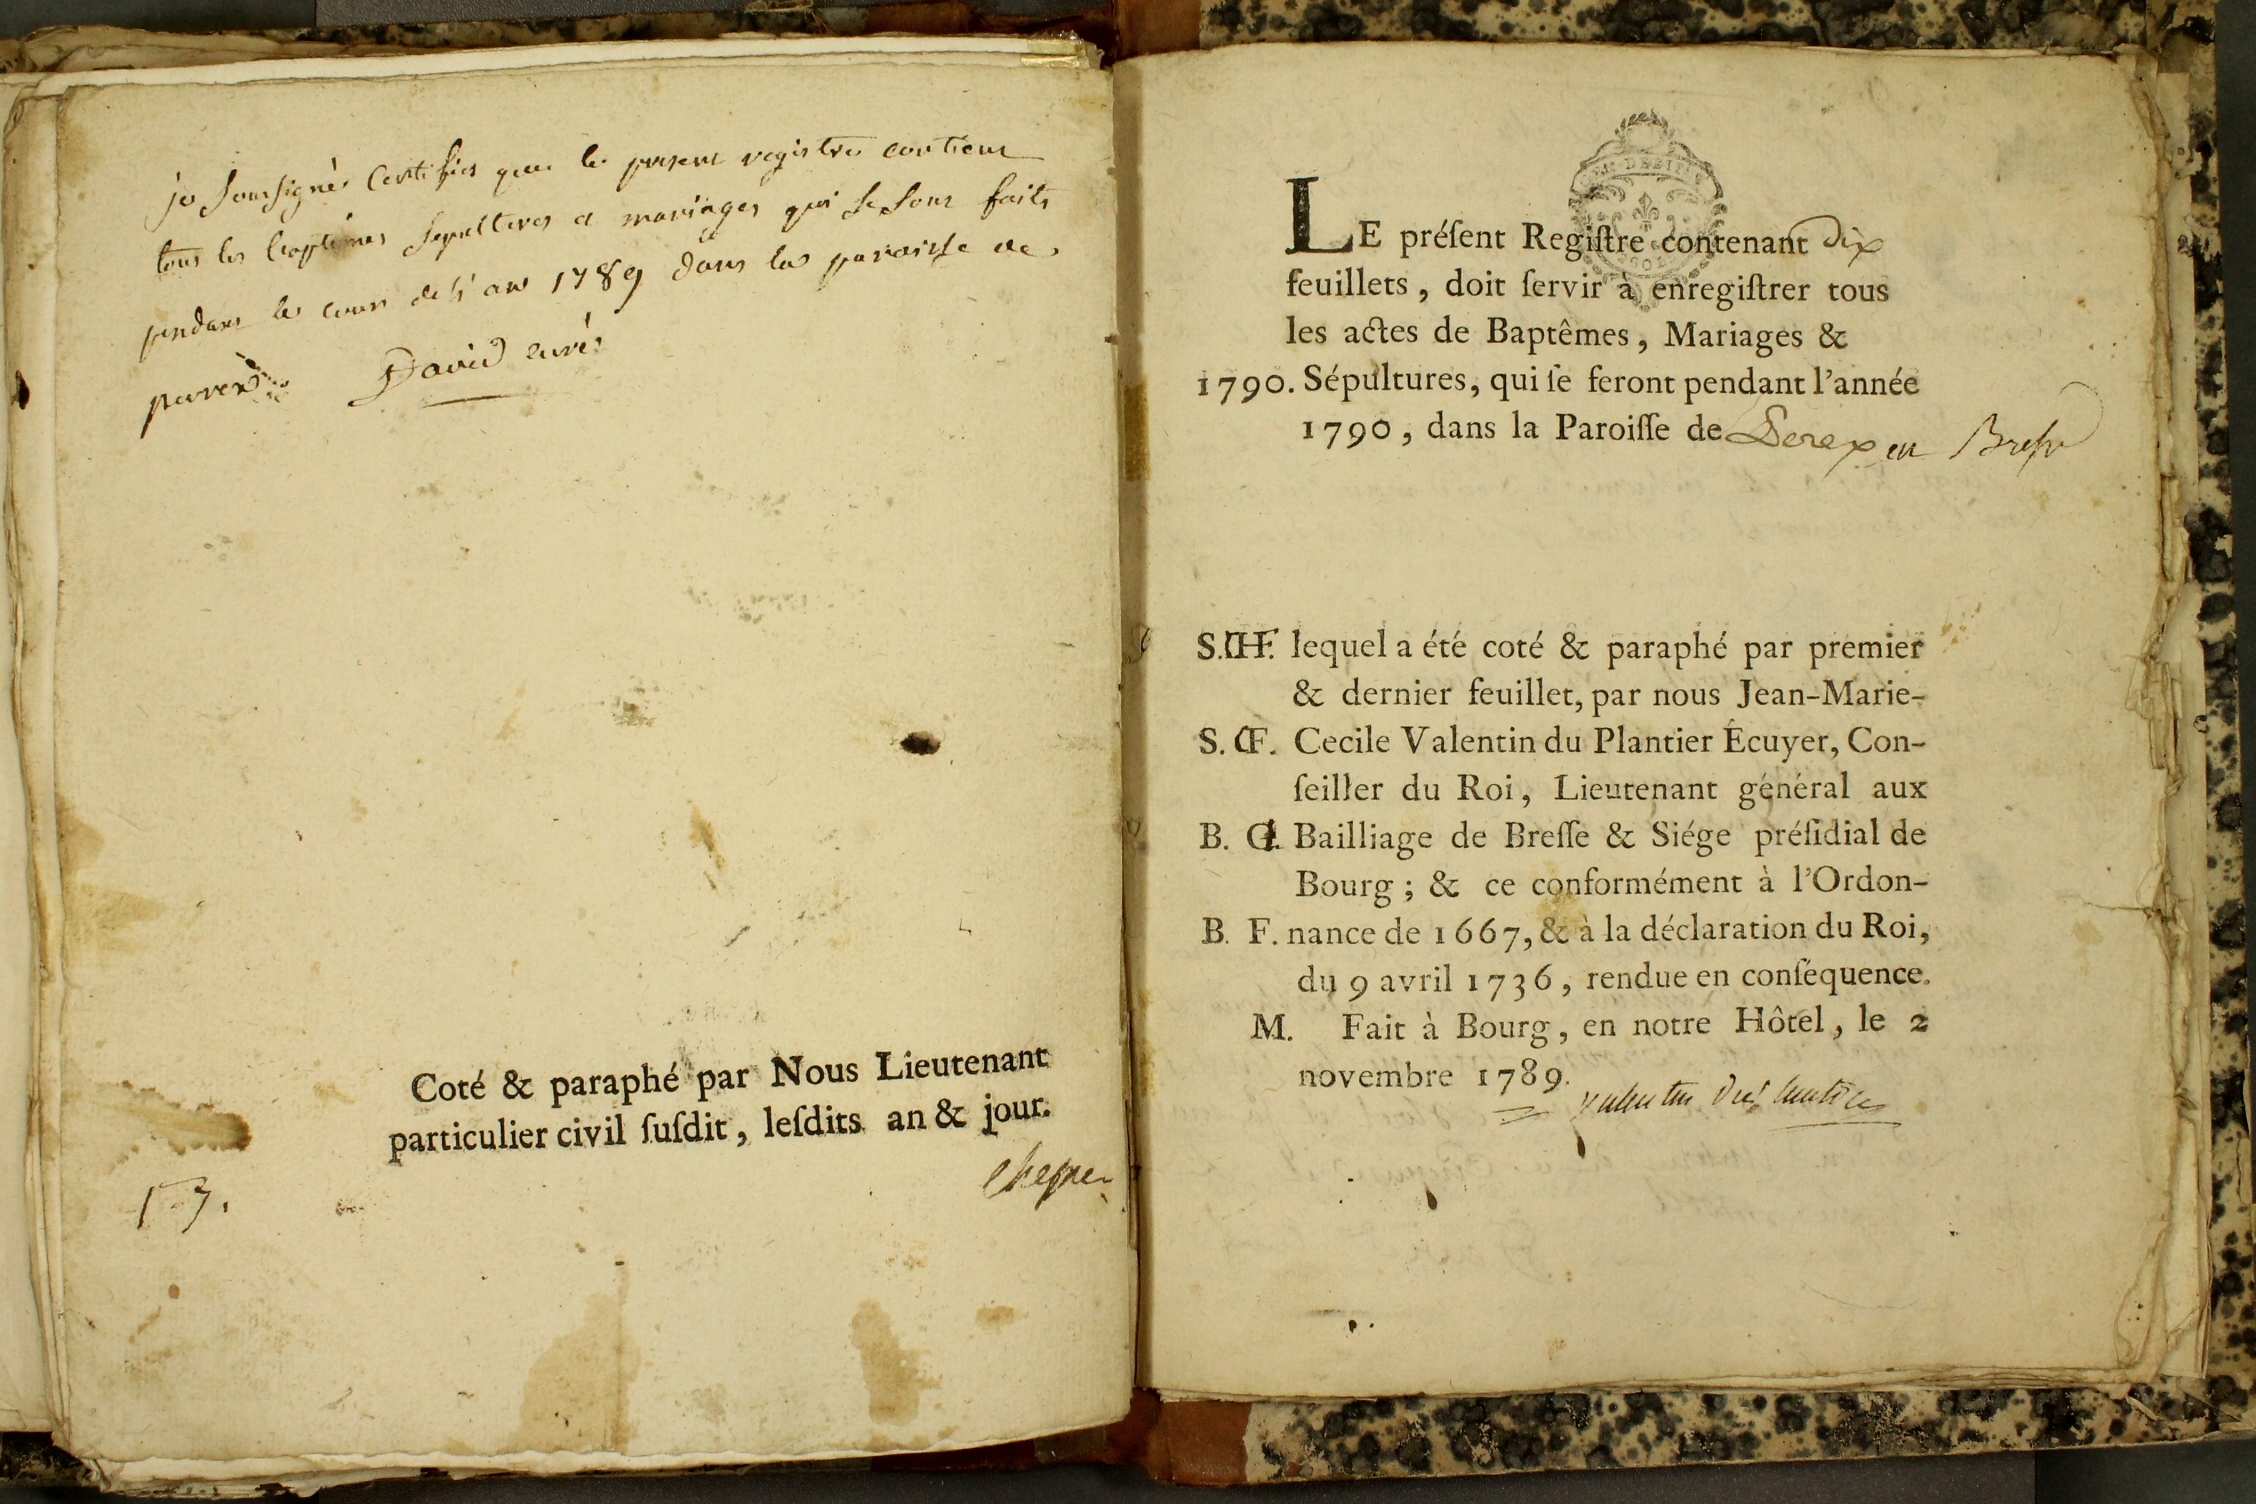 je soussigné certifies que le present registre contient
tous les baptêmes sepultures et mariages qui se sont faits
pendant le cours de l'an 1789 dans la paroisse de
perex David curé
Coté & paraphé par Nous Lieutenant
particulier civil ſuſdit, leſdits an & jour.
LE préſent Regiſtre contenant dix
feuillets, doit ſervir à enregiſtrer tous
les actes de Baptêmes, Mariages &
1790. Sépultures, qui ſe feront pendant l'année
1790, dans la Paroiſſe de Perex en Bresse
S. lequel a été coté & paraphé par premier
& dernier feuillet, par nous Jean-Marie-
S. F. Cecile Valentin du Plantier Écuyer, Con-
ſeiller du Roi, Lieutenant général aux
B. Bailliage de Breſſe & Siége préſidial de
Bourg ; & ce conformément à l'Ordon-
B. F. nance de 1667, & à la déclaration du Roi,
du 9 avril 1736, rendue en conſéquence.
M. Fait à Bourg, en notre Hôtel, le 2
novembre 1789.
Valentin Duplantier